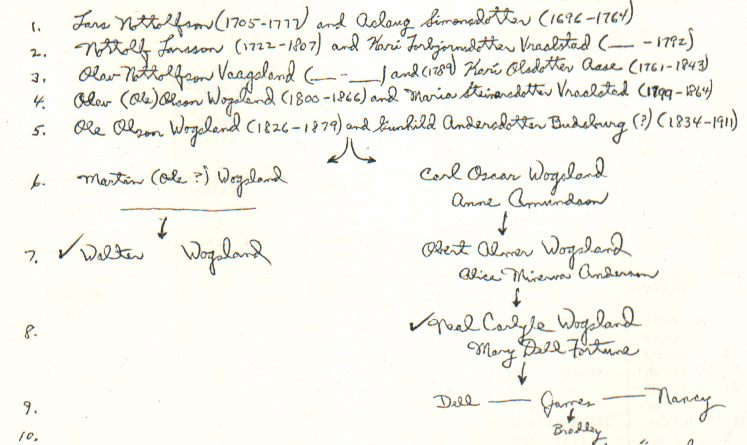 1. Lars Nottolfson (1705-1777) and Aslaug Simonsdotter (1696-1764)
2. Nottolf Larsson (1722-1807) and Kari Torbjornsdotter Vraalstad (__ -1792)
3. Olav Nottolfson Vaagsland (__-__) and (1789) Kari Olsdotter Aase (1761-1843)
4. Olav (Ole) Olson Wogsland (1800-1866) and Maria Steinersdotter Vraalstad (1799-1864)
5. Ole Olson Wogsland (1826-1879) and Gunhild Andersdotter Budsburg (?) (1834-1911)
6. Martin (Ole ?) Wogsland Carl Oscar Wogsland
Anne Amundson
7. ✓ Walter Wogsland Obert Almer Wogsland
Alice Minerva Anderson
8. ✓ Neal Carlyle Wogsland
Mary Dell Fortune
9. Dell — James — Nancy
Bradley
10.